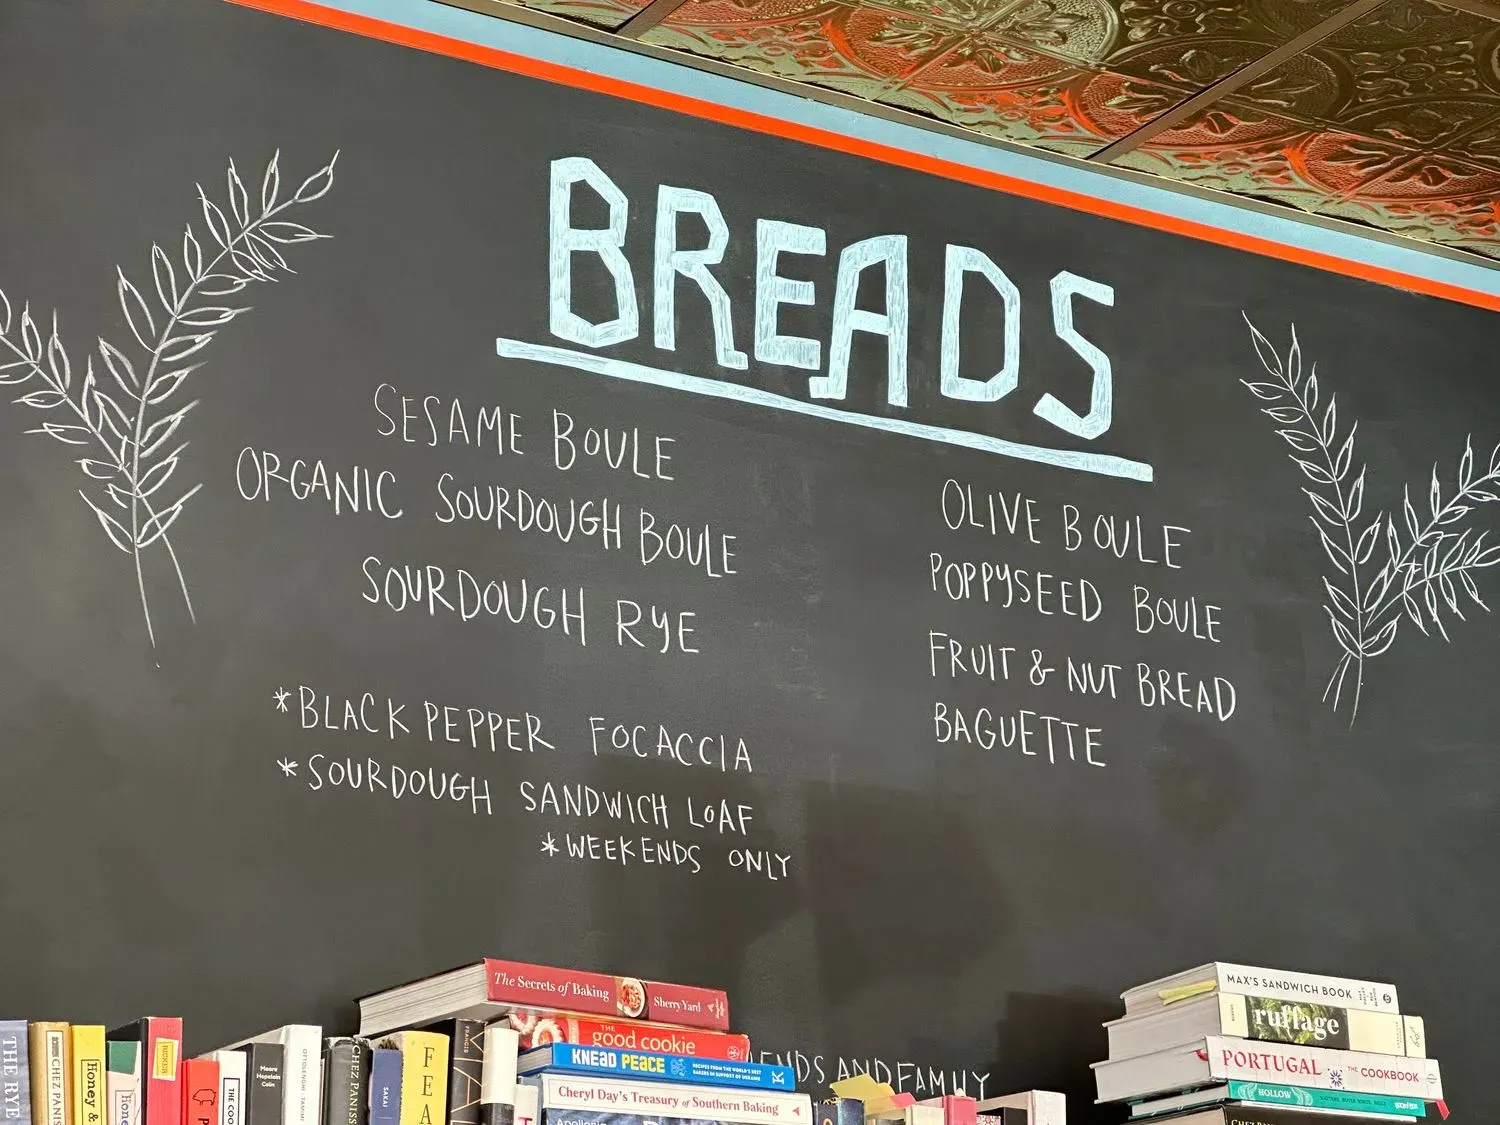 BREADS
SESAME BOULE
ORGANIC SOURDOUGH BOULE
SOURDOUGH RYE
*BLACK PEPPER FOCACCIA
*SOURDOUGH SANDWICH LOAF
*WEEKENDS ONLY
OLIVE BOULE
POPPYSEED BOULE
FRUIT & NUT BREAD
BAGUETTE
AND FAMILY
The Secrets of Baking Sherry Yard
THE good cookie
KNEAD PEACE RECIPES FROM THE WORLD'S BEST BAKERS IN SUPPORT OF UKRAINE
Cheryl Day's Treasury of Southern Baking
MAX'S SANDWICH BOOK
ruffage
PORTUGAL THE COOKBOOK
HOLLOW
CHEZ PANISSE
THE RYE
CHEZ PANIS
Honey &
Hone
THE COO
Moore Hopelain Colin
OTTOLENGHI TAMIMI
CHEZ PANIS
SAKAI
FEA
FRANCIS